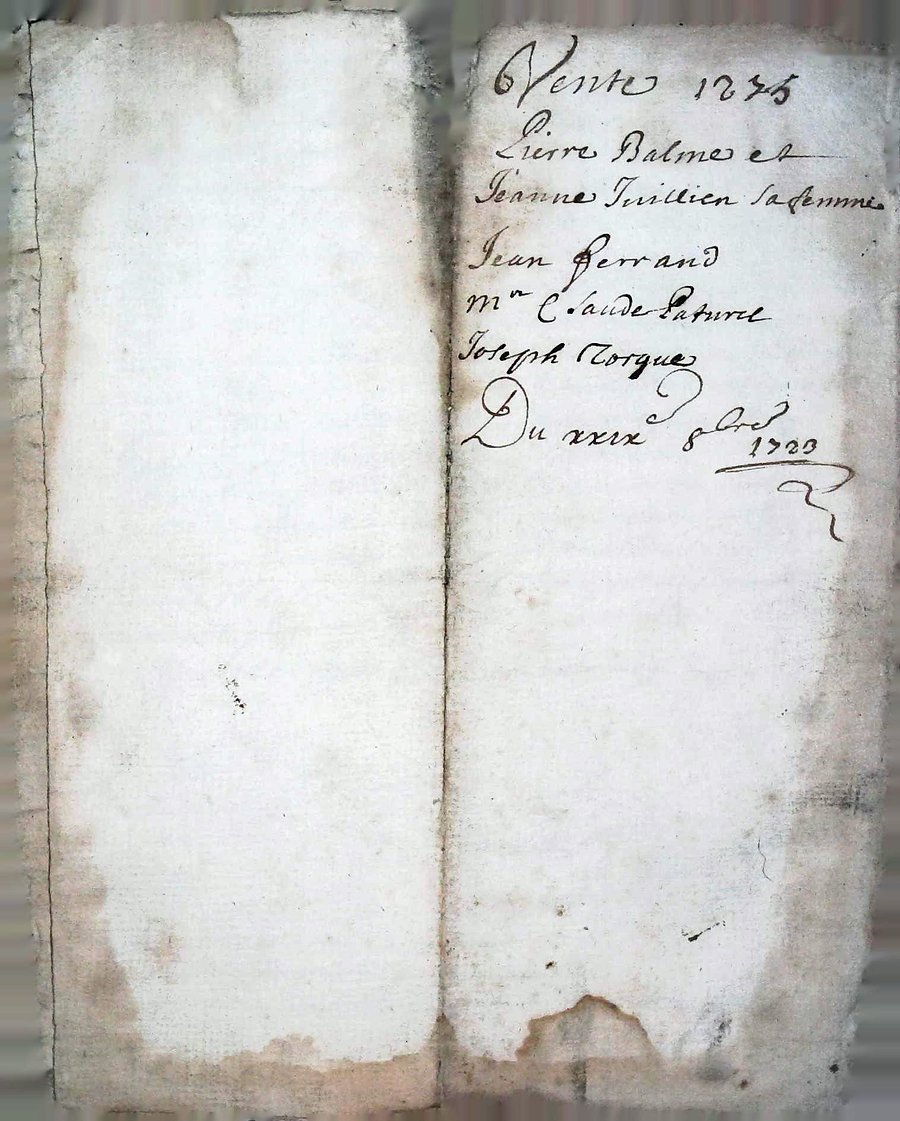 Vente 1275
Pierre Balme et
Jeanne Juillien sa femme
Jean ferrand
mre Claude Paturel
Joseph Torque
Du xxixe 8bres
1723